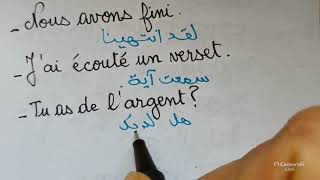 - Nous avons fini.
لقد انتهينا
- J'ai écouté un verset.
سمعت آية
- Tu as de l'argent?
هل لديك